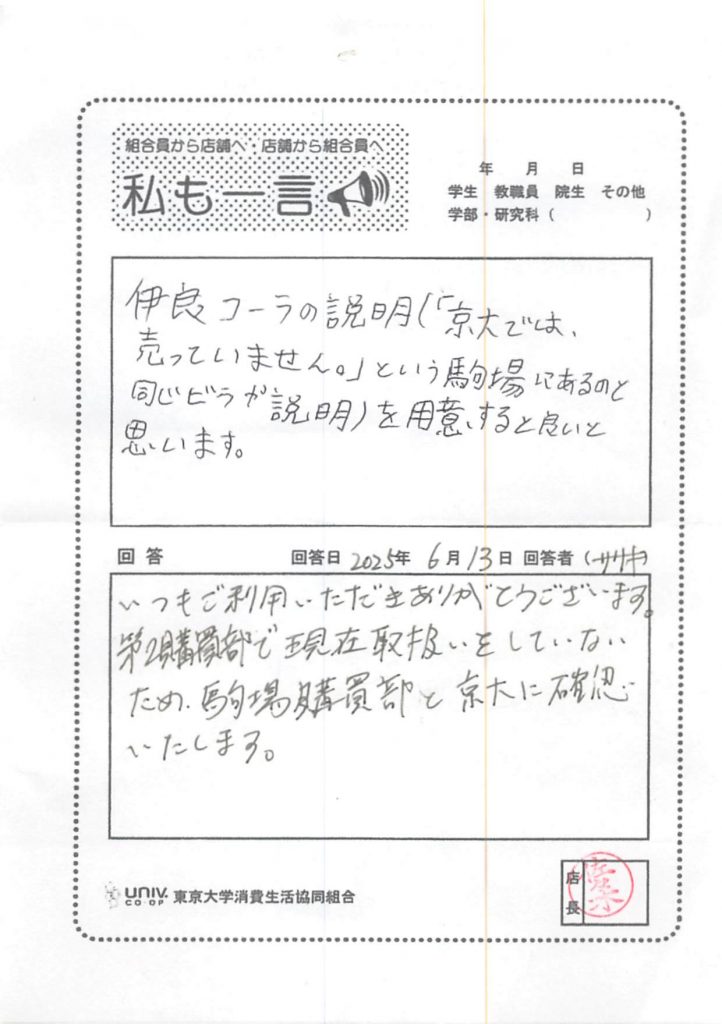 組合員から店舗へ・店舗から組合員へ
私も一言
年 月 日
学生 教職員 院生 その他
学部・研究科（ ）
伊良コーラの説明(「京大では、
売っていません。」という駒場にあるのと
同じビラか説明)を用意すると良いと
思います。
回答 回答日 2025年 6月13日 回答者（ササキ）
いつもご利用いただきありがとうございます。
第2購買部で現在取扱いをしていない
ため、駒場購買部と京大に確認
いたします。
UNIV.
CO-OP
東京大学消費生活協同組合
店長